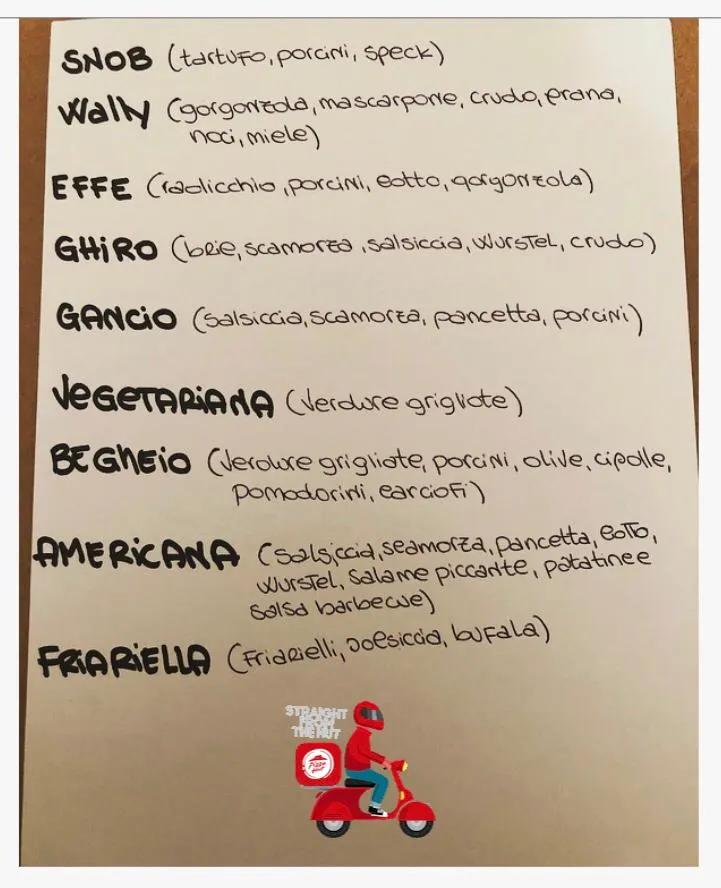 SNOB (tartufo, porcini, speck)
Wally (gorgonzola, mascarpone, crudo, grana,
noci, miele)
EFFE (radicchio, porcini, cotto, gorgonzola)
GHIRO (brie, scamorza, salsiccia, wurstel, crudo)
GANCIO (salsiccia, scamorza, pancetta, porcini)
VEGETARIANA (verdure grigliate)
BEGHEIO (verdure grigliate, porcini, olive, cipolle,
pomodorini, carciofi)
AMERICANA (salsiccia, scamorza, pancetta, cotto,
wurstel, salame piccante, patatine e
salsa barbecue)
FRIARIELLA (friarielli, salsiccia, bufala)
STRAIGHT
FROM
THE HUT
Pizza
Hut